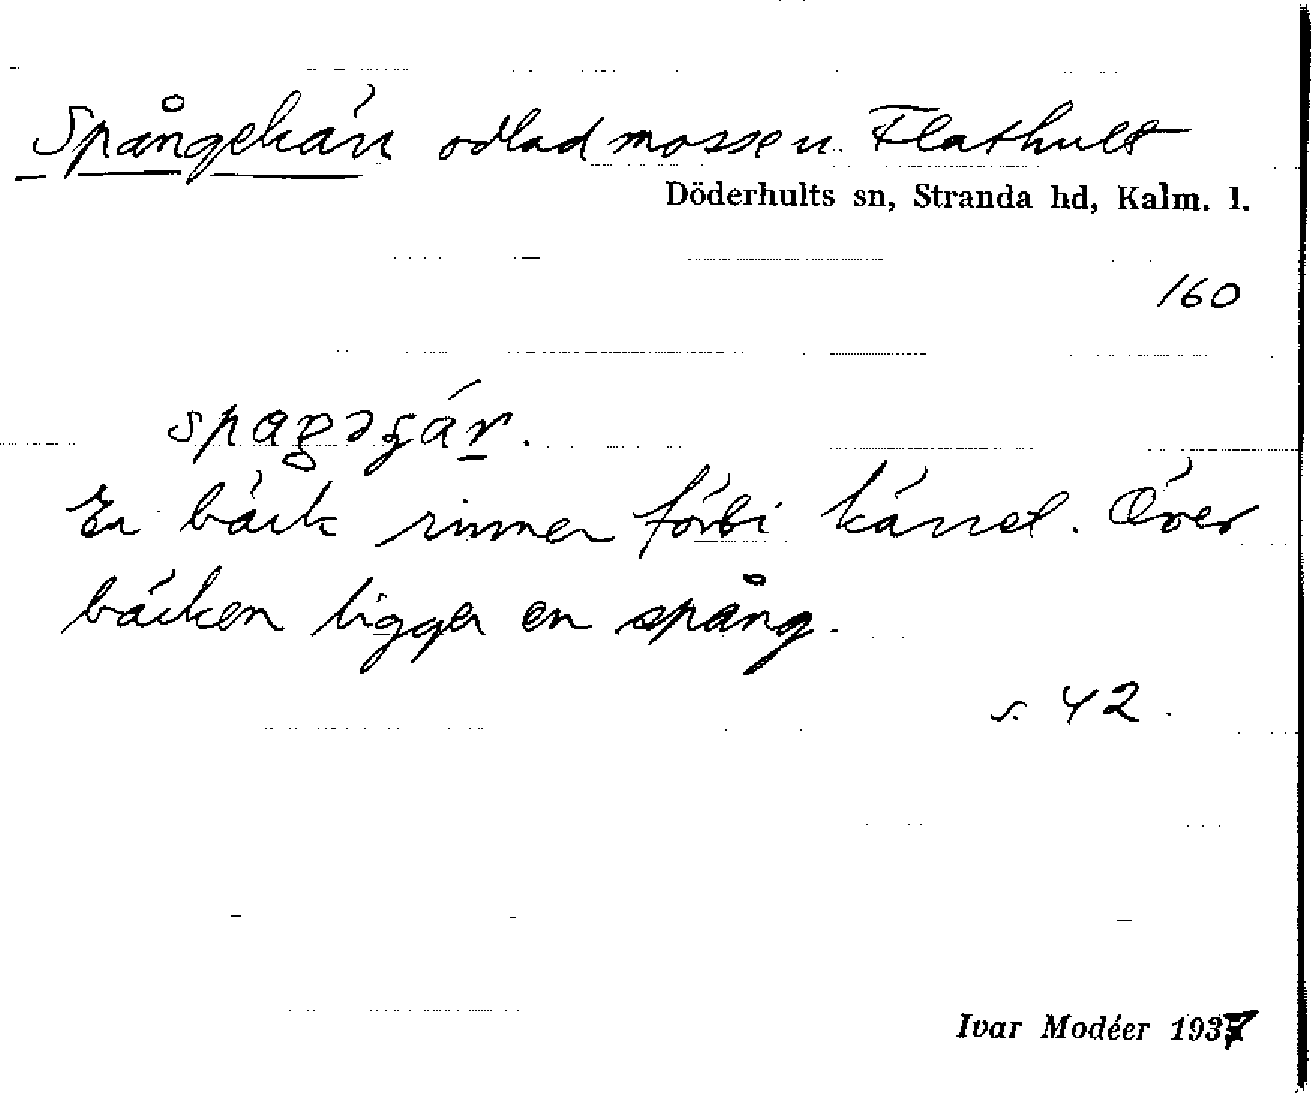 Spångekärr odlad mosse u. Flathult
Döderhults sn, Stranda hd, Kalm. l.
160
En bäck rinner förbi kärret. Över
bäcken ligger en spång.
s. 42.
Ivar Modéer 1937